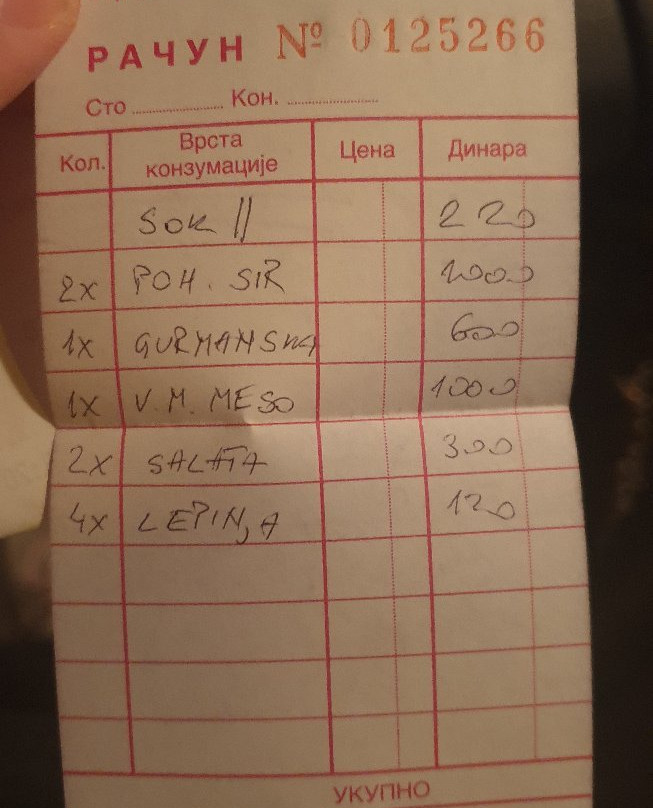 РАЧУН № 0125266
Сто ............ Кон. ............
Кол. Врста конзумације Цена Динара
SOK || 220
2x POH. SIR 1000
1x GURMANSKA 600
1x V.M. MESO 1000
2x SALATA 300
4x LEPINJA 120
УКУПНО